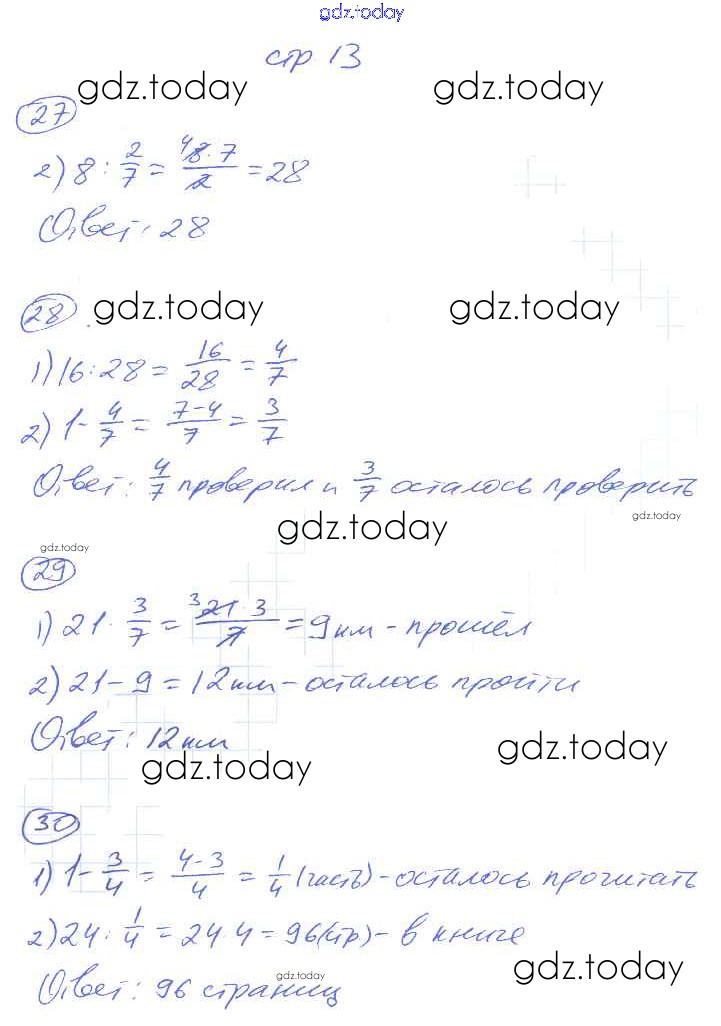 gdz.today
стр 13
gdz.today gdz.today
27
2) 8 : 2/7 = 8·7/2 = 28
4
Ответ: 28
28 gdz.today gdz.today
1) 16 : 28 = 16/28 = 4/7
2) 1 - 4/7 = 7-4/7 = 3/7
Ответ: 4/7 проверил и 3/7 осталось проверить
gdz.today gdz.today
gdz.today
29
1) 21 · 3/7 = 21·3/7 = 9 км - прошёл
3
2) 21 - 9 = 12 км - осталось пройти
Ответ: 12 км
gdz.today gdz.today
30
1) 1 - 3/4 = 4-3/4 = 1/4 (часть) - осталось прочитать
2) 24 : 1/4 = 24·4 = 96 (стр) - в книге
gdz.today gdz.today
Ответ: 96 страниц